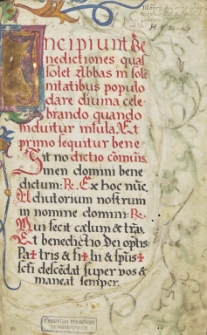 Incipiunt Be
nedictiones quas
solet Abbas in sole
nitatibus populo
dare divina cele
brando quando
induitur infula. Et
primo sequitur bene
Sit no dictio comūis.
men domini bene
dictum: ℞. Ex hoc nūc.
Adiutorium nostrum
in nomine domini: ℞.
Qui fecit cælum & trā.
Et benedictio dei oīptīs
Pa✝tris & fi✝lii & spūs✝
scī descēdat super vos &
maneat semper.